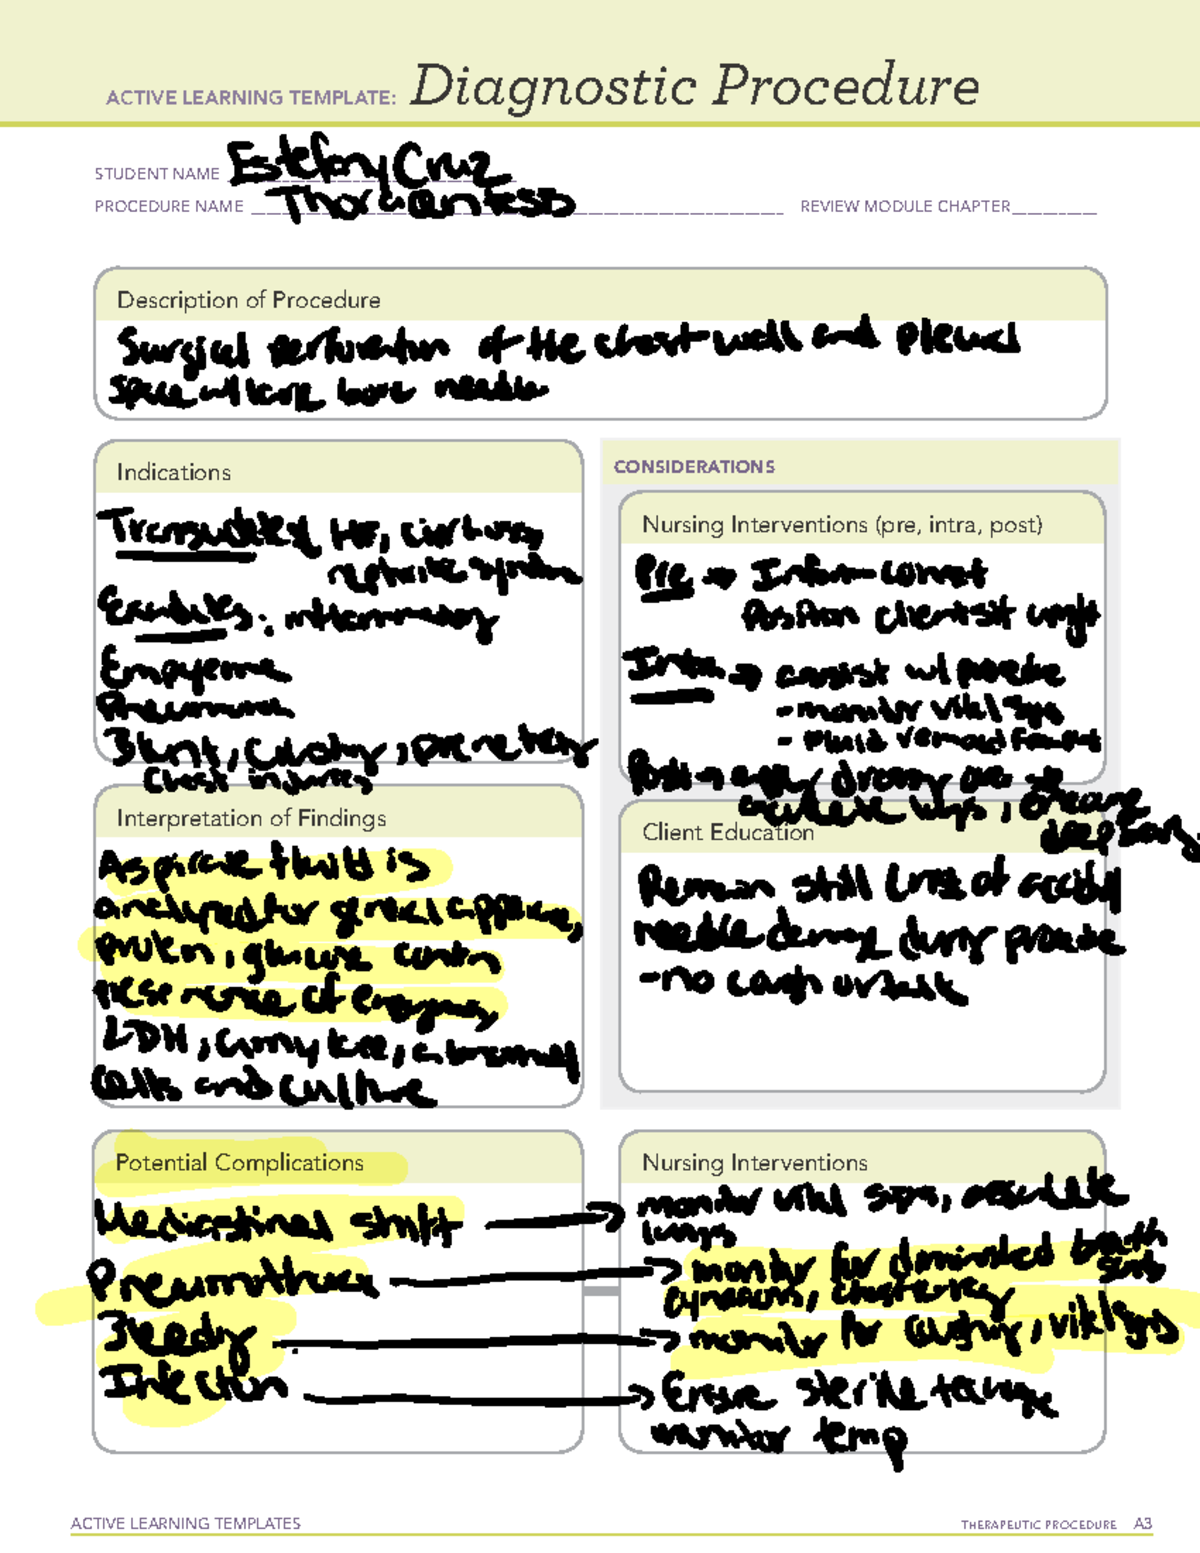 ACTIVE LEARNING TEMPLATE: Diagnostic Procedure
STUDENT NAME Estefany Cruz
PROCEDURE NAME Thoracentesis REVIEW MODULE CHAPTER
Description of Procedure
Surgical perforation of the chest wall and pleural
space w/ large bore needle
Indications
Transudates HF, cirrhosis,
nephrotic syndrome
Exudates: inflammatory
Empyema
Pneumonia
Blunt, crushing, penetrating
chest injuries
CONSIDERATIONS
Nursing Interventions (pre, intra, post)
Pre → Inform consent
Position client sit upright
Intra → assist w/ provider
- monitor vital signs
- Fluid removed amount
Post → apply dressing over
auscultate lungs, encourage
deep
Interpretation of Findings
Aspirate fluid is
analyzed for general appearance,
protein, glucose content
presence of enzymes
LDH, amylase, abnormal
cells and culture
Client Education
Remain still (risk of accidental
needle damage during procedure
- no cough or talk
Potential Complications
Mediastinal shift
Pneumothorax
Bleeding
Infection
Nursing Interventions
monitor vital signs, auscultate
lungs
monitor for diminished breath
sounds
monitor for coughing, vital signs
Ensure sterile technique
monitor temp
ACTIVE LEARNING TEMPLATES THERAPEUTIC PROCEDURE A3